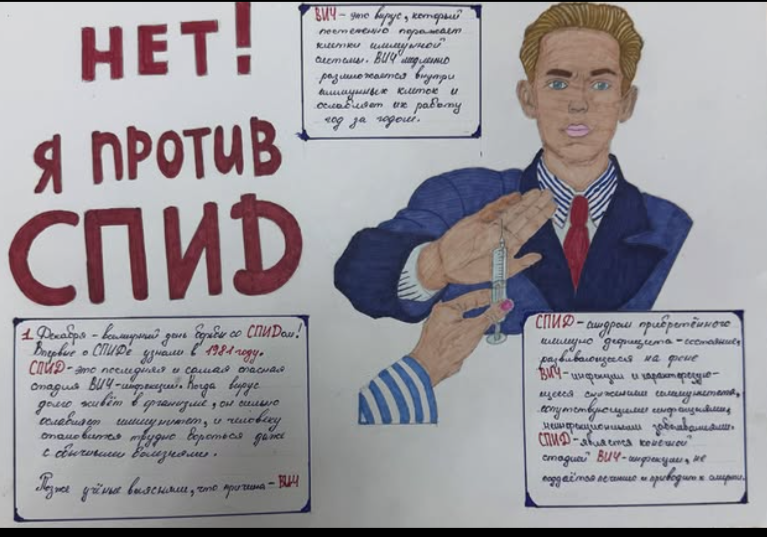 НЕТ!
Я ПРОТИВ
СПИД
ВИЧ - это вирус, который
постепенно поражает
клетки иммунной
системы. ВИЧ медленно
размножается внутри
иммунных клеток и
ослабляет их работу
год за годом.
1 Декабря - всемирный день борьбы со СПИДом!
Впервые о СПИДе узнали в 1981 году.
СПИД - это последняя и самая опасная
стадия ВИЧ-инфекции. Когда вирус
долго живёт в организме, он сильно
ослабляет иммунитет, и человеку
становится трудно бороться даже
с обычными болезнями.
Позже учёные выяснили, что причина - ВИЧ
СПИД - синдром приобретённого
иммуно дефицита - состояние,
развивающееся на фоне
ВИЧ-инфекции и характеризую-
щееся снижением иммунитета,
сопутствующими инфекциями,
неинфекционными заболеваниями.
СПИД - является конечной
стадией ВИЧ-инфекции, не
поддаётся лечению и приводит к смерти.